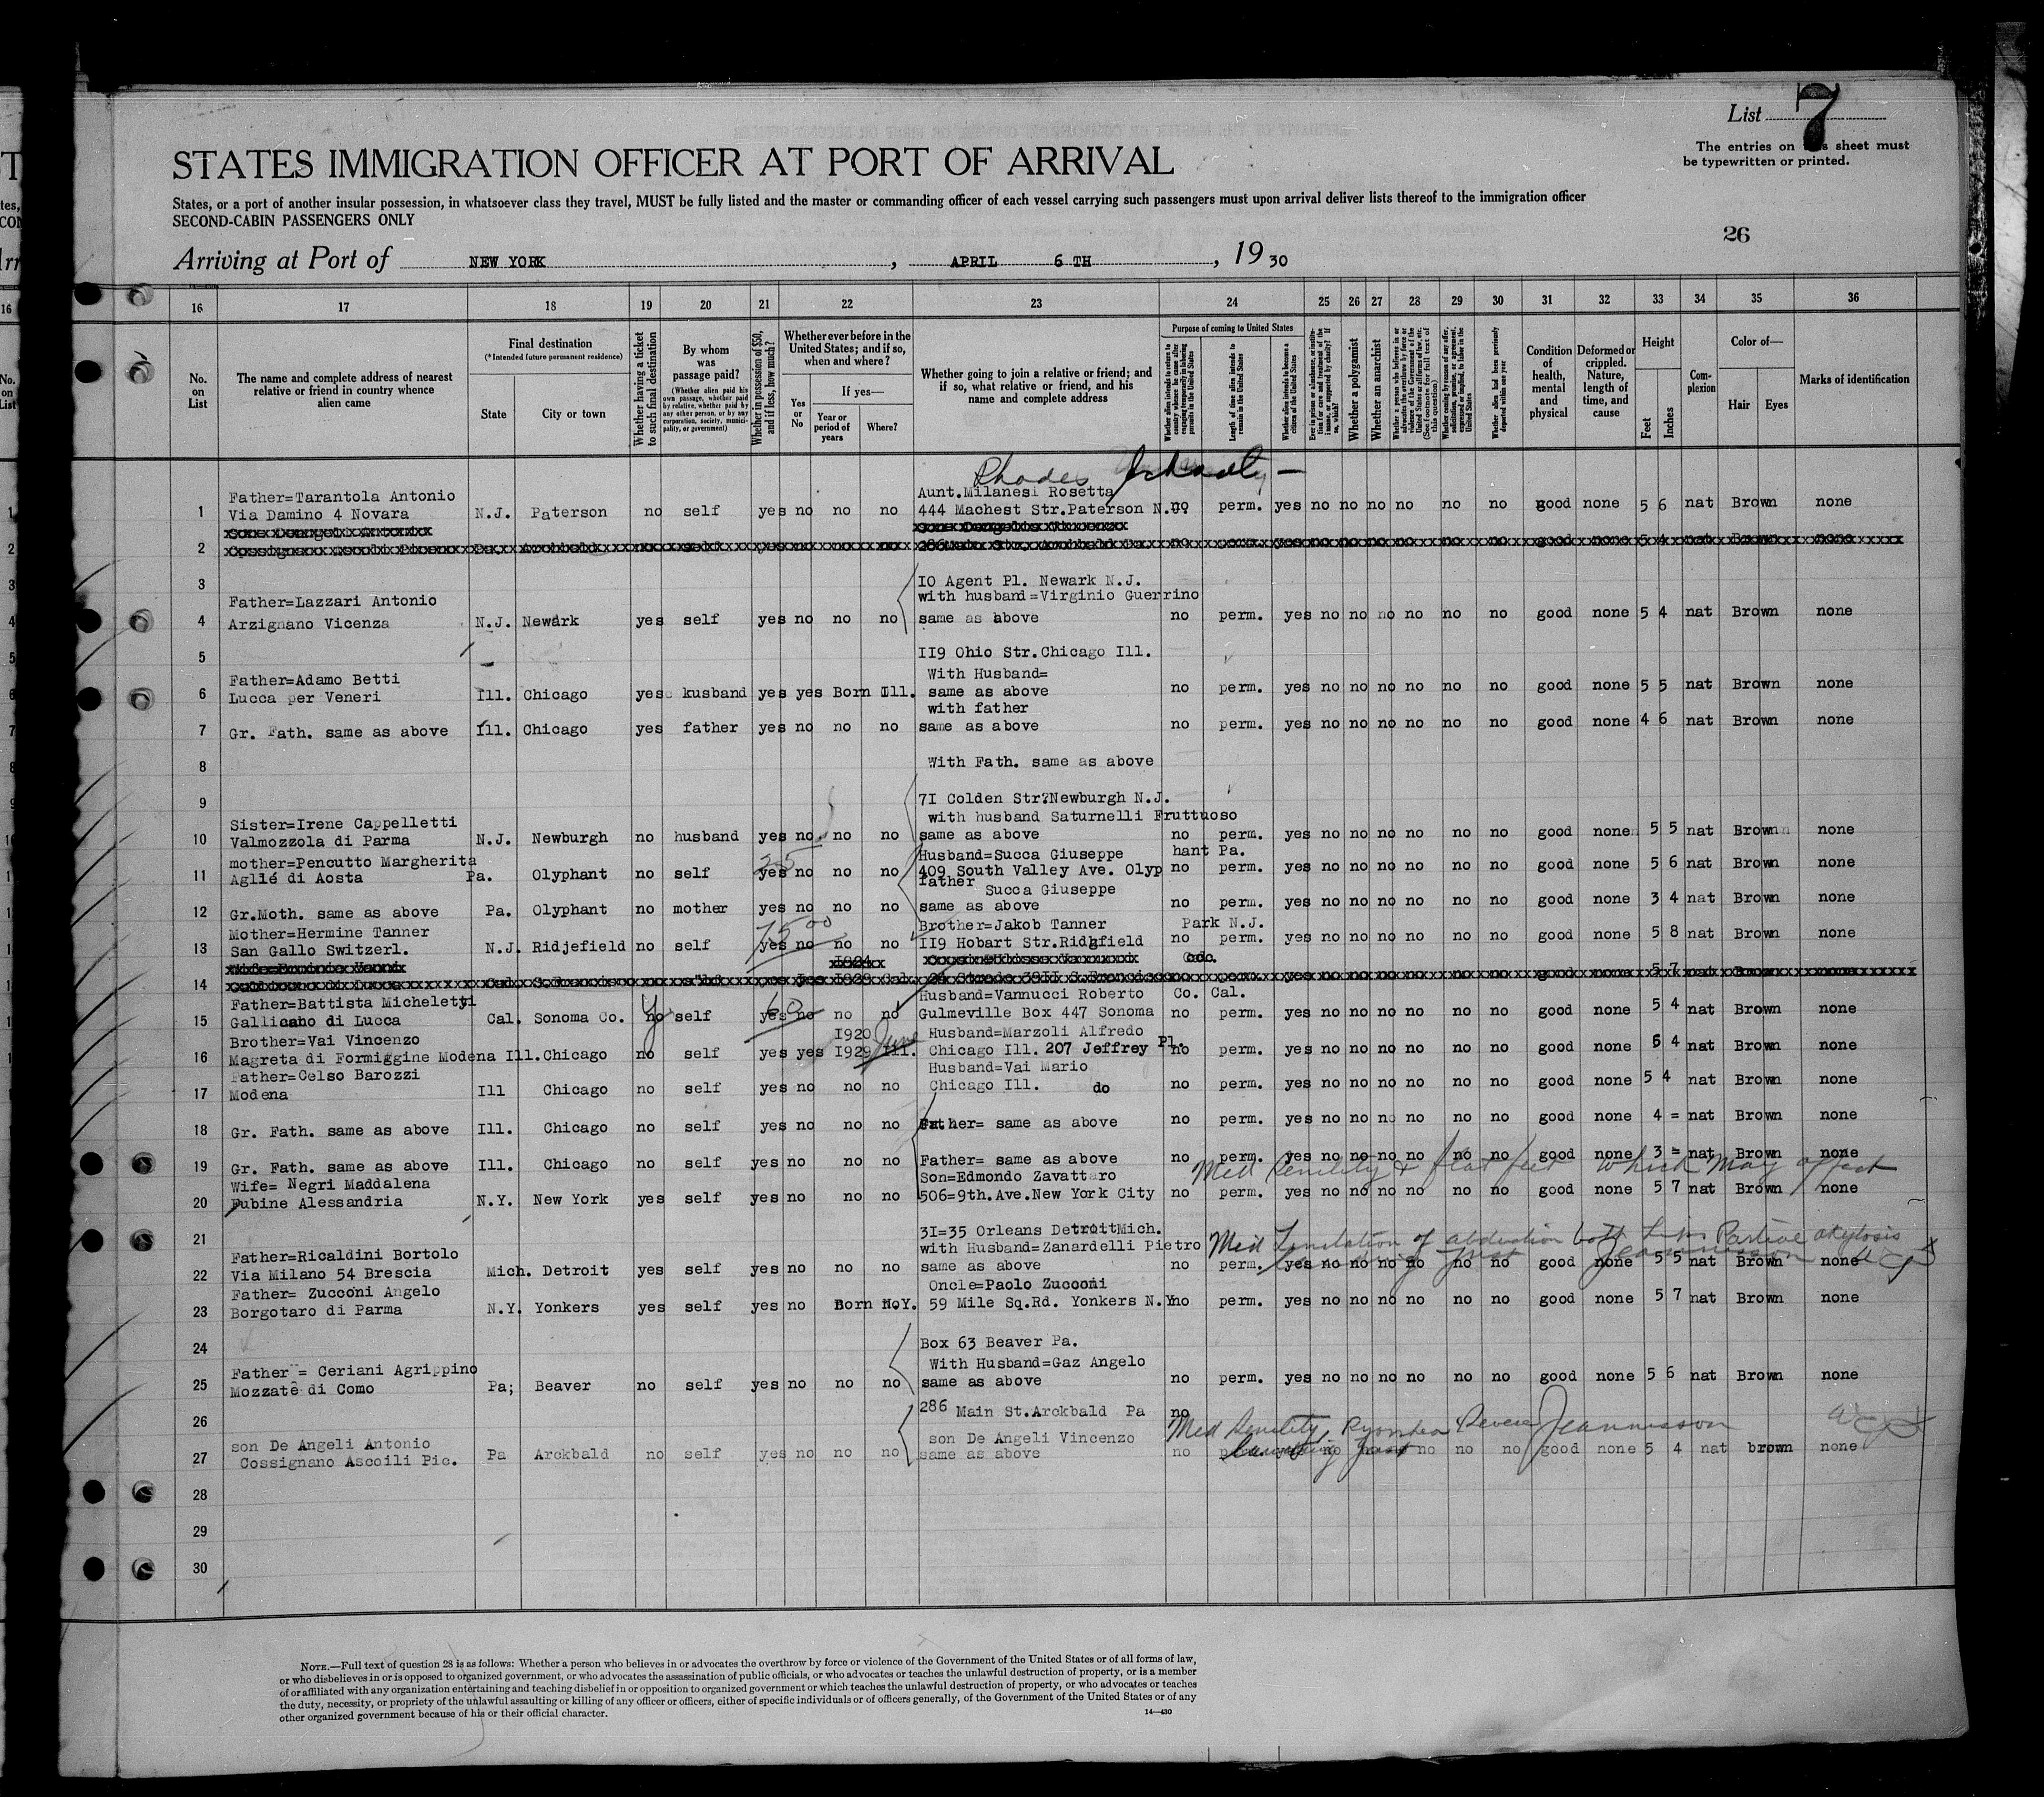 List 7
The entries on this sheet must
be typewritten or printed.
STATES IMMIGRATION OFFICER AT PORT OF ARRIVAL
States, or a port of another insular possession, in whatsoever class they travel, MUST be fully listed and the master or commanding officer of each vessel carrying such passengers must upon arrival deliver lists thereof to the immigration officer
SECOND-CABIN PASSENGERS ONLY
26
Arriving at Port of NEW YORK , APRIL 6 TH , 19 30
16 17 18 19 20 21 22 23 24 25 26 27 28 29 30 31 32 33 34 35 36
No. on List
The name and complete address of nearest relative or friend in country whence alien came
Final destination
(*Intended future permanent residence)
State
City or town
Whether having a ticket to such final destination
By whom was passage paid?
(Whether alien paid his own passage, whether paid by relative, whether paid by any other person, or by any corporation, society, municipality, or government)
Whether in possession of $50, and if less, how much?
Whether ever before in the United States; and if so, when and where?
Yes or No
If yes—
Year or period of years
Where?
Whether going to join a relative or friend; and if so, what relative or friend, and his name and complete address
Purpose of coming to United States
Length of time alien intends to remain in the United States
Whether alien intends to become a citizen of the United States
Whether a polygamist
Whether an anarchist
Whether alien had been previously deported within one year
Condition of health, mental and physical
Deformed or crippled. Nature, length of time, and cause
Height
Feet
Inches
Complexion
Color of—
Hair
Eyes
Marks of identification
Rhodes
Father=Tarantola Antonio Aunt.Milanesi Rosetta
1 Via Damino 4 Novara N.J. Paterson no self yes no no no 444 Machest Str.Paterson N.J. no perm. yes no no no no no no good none 5 6 nat Brown none
2
3 IO Agent Pl. Newark N.J.
Father=Lazzari Antonio with husband=Virginio Guerrino
4 Arzignano Vicenza N.J. Newark yes self yes no no no same as above no perm. yes no no no no no no good none 5 4 nat Brown none
5 II9 Ohio Str.Chicago Ill.
Father=Adamo Betti With Husband=
6 Lucca per Veneri Ill. Chicago yes kusband yes yes Born Ill. same as above no perm. yes no no no no no no good none 5 5 nat Brown none
with father
7 Gr. Fath. same as above Ill. Chicago yes father yes no no no same as above no perm. yes no no no no no no good none 4 6 nat Brown none
8 With Fath. same as above
9 7I Colden Str?Newburgh N.J.
Sister=Irene Cappelletti with husband Saturnelli Fruttuoso
10 Valmozzola di Parma N.J. Newburgh no husband yes no no no same as above no perm. yes no no no no no no good none 5 5 nat Brown none
mother=Pencutto Margherita 25 Husband=Succa Giuseppe hant Pa.
11 Aglié di Aosta Pa. Olyphant no self yes no no no 409 South Valley Ave. Olyp no perm. yes no no no no no no good none 5 6 nat Brown none
father Succa Giuseppe
12 Gr.Moth. same as above Pa. Olyphant no mother yes no no no same as above no perm. yes no no no no no no good none 3 4 nat Brown none
Mother=Hermine Tanner 75 00 Brother=Jakob Tanner Park N.J.
13 San Gallo Switzerl. N.J. Ridjefield no self yes no no no II9 Hobart Str.Ridgfield no perm. yes no no no no no no good none 5 8 nat Brown none
14
Father=Battista Micheletti 60 Husband=Vannucci Roberto Co. Cal.
15 Gallicano di Lucca Cal. Sonoma Co. no self yes no no no Gulmeville Box 447 Sonoma no perm. yes no no no no no no good none 5 4 nat Brown none
Brother=Vai Vincenzo I920 June Husband=Marzoli Alfredo
16 Magreta di Formiggine Modena Ill. Chicago no self yes yes I929 Ill. Chicago Ill. 207 Jeffrey Pl. no perm. yes no no no no no no good none 5 4 nat Brown none
Father=Celso Barozzi Husband=Vai Mario
17 Modena Ill Chicago no self yes no no no Chicago Ill. do no perm. yes no no no no no no good none 5 4 nat Brown none
18 Gr. Fath. same as above Ill. Chicago no self yes no no no Father= same as above no perm. yes no no no no no no good none 4 = nat Brown none
19 Gr. Fath. same as above Ill. Chicago no self yes no no no Father= same as above no perm. yes no no no no no no good none 3 = nat Brown none
Med Senility & flat feet which may affect
Wife= Negri Maddalena Son=Edmondo Zavattaro
20 Fubine Alessandria N.Y. New York yes self yes no no no 506=9th.Ave.New York City no perm. yes no no no no no no good none 5 7 nat Brown none
21 3I=35 Orleans DetroitMich.
Med Limitation of abduction both Partial
Father=Ricaldini Bortolo with Husband=Zanardelli Pietro
22 Via Milano 54 Brescia Mich. Detroit yes self yes no no no same as above no perm. yes no no no no no no good none 5 5 nat Brown none
Father= Zucconi Angelo Oncle=Paolo Zucconi
23 Borgotaro di Parma N.Y. Yonkers yes self yes no Born N.Y. 59 Mile Sq.Rd. Yonkers N.Y no perm. yes no no no no no no good none 5 7 nat Brown none
24 Box 63 Beaver Pa.
Father = Ceriani Agrippino With Husband=Gaz Angelo
25 Mozzate di Como Pa; Beaver no self yes no no no same as above no perm. yes no no no no no no good none 5 6 nat Brown none
26 286 Main St.Arckbald Pa no
Med Senility, Severe
son De Angeli Antonio son De Angeli Vincenzo
27 Cossignano Ascoili Pic. Pa Arckbald no self yes no no no same as above no no no no no good none 5 4 nat brown none
28
29
30
NOTE.—Full text of question 28 is as follows: Whether a person who believes in or advocates the overthrow by force or violence of the Government of the United States or of all forms of law,
or who disbelieves in or is opposed to organized government, or who advocates the assassination of public officials, or who advocates or teaches the unlawful destruction of property, or is a member
of or affiliated with any organization entertaining and teaching disbelief in or opposition to organized government or which teaches the unlawful destruction of property, or who advocates or teaches
the duty, necessity, or propriety of the unlawful assaulting or killing of any officer or officers, either of specific individuals or of officers generally, of the Government of the United States or of any
other organized government because of his or their official character.
14—430